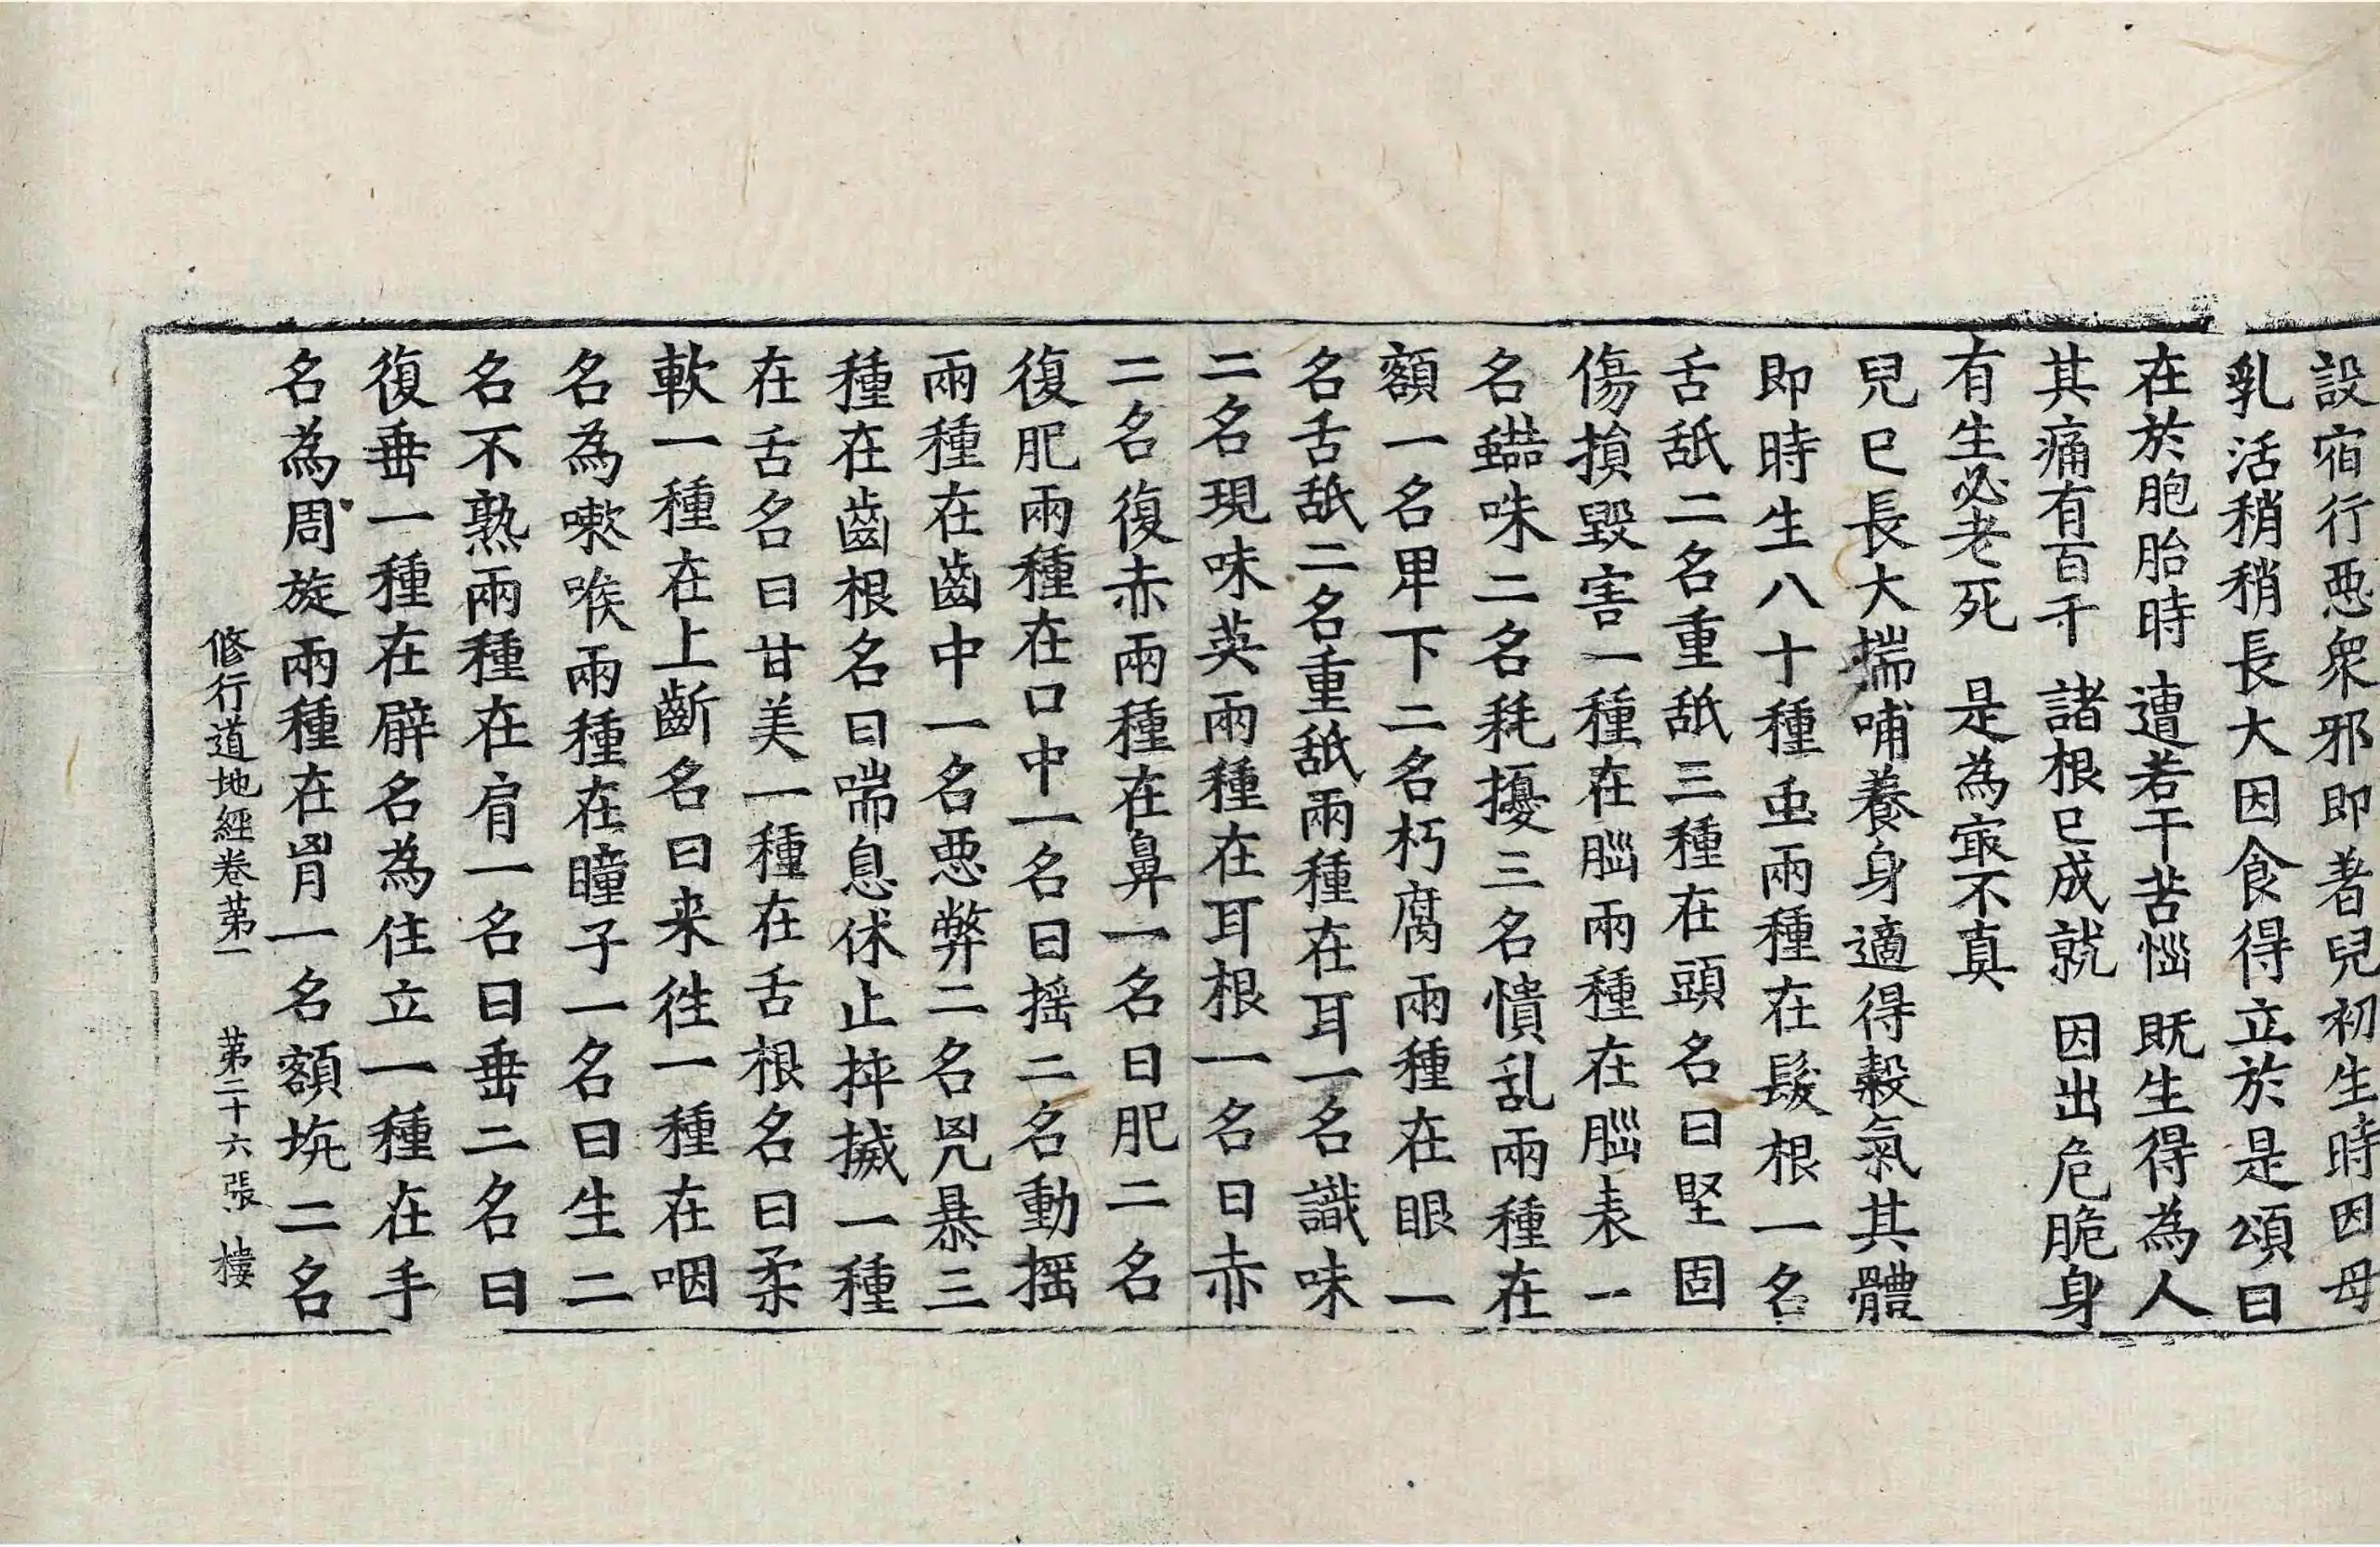 設宿行惡衆邪即著兒初生時因母
乳活稍稍長大因食得立於是頌曰
在於胞胎時 遭若干苦惱 既生得為人
其痛有百千 諸根已成就 因出危脆身
有生必老死 是為㝡不真
兒已長大揣哺養身適得穀氣其體
即時生八十種虫兩種在髮根一名
舌舐二名重舐三種在頭名曰堅固
傷損毀害一種在腦兩種在腦表一
名蛣蛛二名耗擾三名憒乱兩種在
額一名甲下二名朽腐兩種在眼一
名舌舐二名重舐兩種在耳一名識味
二名現味英兩種在耳根一名曰赤
二名復赤兩種在鼻一名曰肥二名
復肥兩種在口中一名曰揺二名動揺
兩種在齒中一名惡弊二名兇暴三
種在齒根名曰喘息休止捽搣一種
在舌名曰甘美一種在舌根名曰柔
軟一種在上齗名曰来徃一種在咽
名為嗽喉兩種在瞳子一名曰生二
名不熟兩種在肩一名曰垂二名曰
復垂一種在臂名為住立一種在手
名為周旋兩種在胷一名額坑二名
修行道地經卷第一 第二十六張 樓